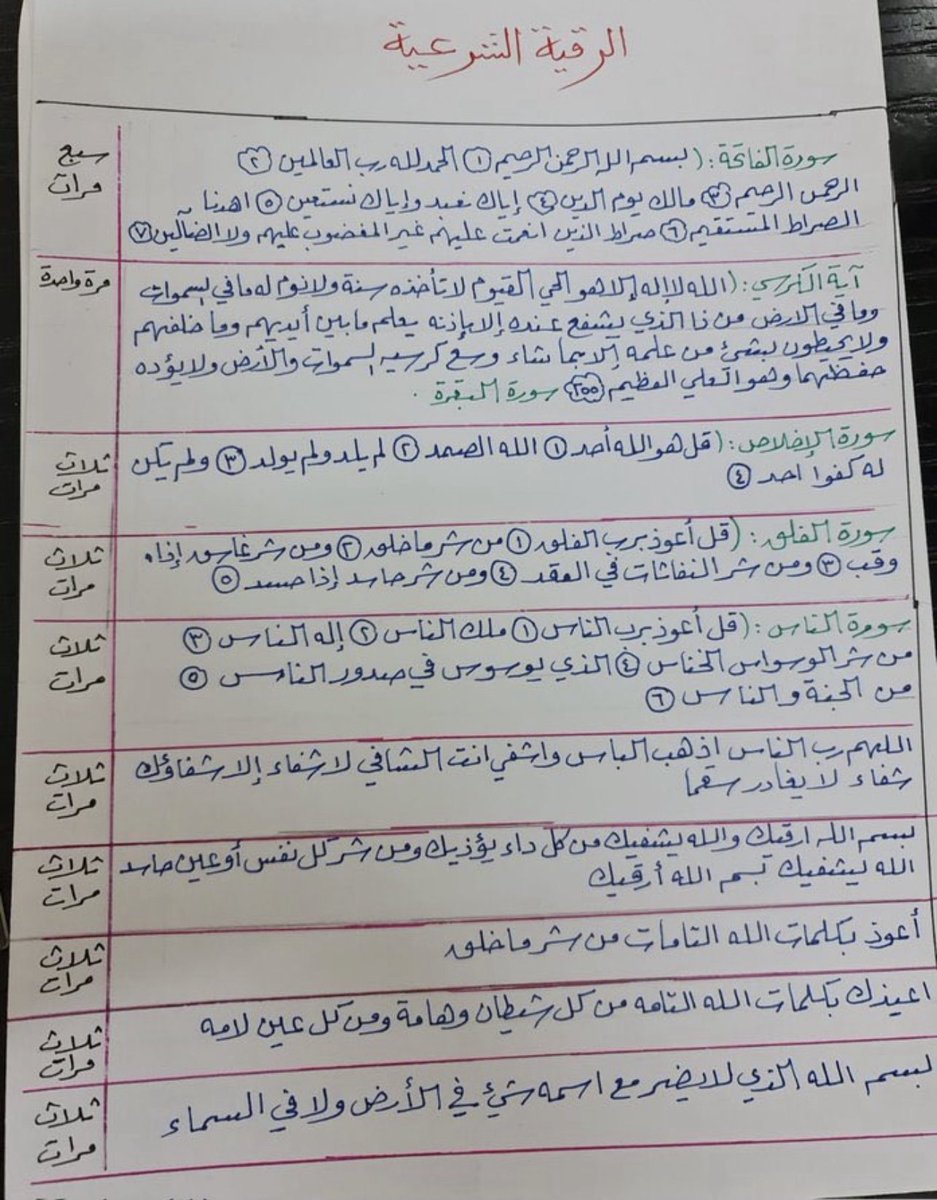 الرقية الشرعية
سورة الفاتحة: (بسم الله الرحمن الرحيم ١ الحمد لله رب العالمين ٢
الرحمن الرحيم ٣ مالك يوم الدين ٤ إياك نعبد وإياك نستعين ٥ اهدنا
الصراط المستقيم ٦ صراط الذين انعمت عليهم غير المغضوب عليهم ولا الضآلين ٧
سبع
مرات
آية الكرسي: (الله لا إله إلا هو الحي القيوم لا تأخذه سنة ولا نوم له ما في السموات
وما في الارض من ذا الذي يشفع عنده إلا بإذنه يعلم ما بين أيديهم وما خلفهم
ولا يحيطون بشئ من علمه إلا بما شاء وسع كرسيه السموات والأرض ولا يؤده
حفظهما وهو العلي العظيم ٢٥٥ سورة البقرة .
مرة واحدة
سورة الإخلاص: (قل هو الله أحد ١ الله الصمد ٢ لم يلد ولم يولد ٣ ولم يكن
له كفوا احد ٤
ثلاث
مرات
سورة الفلق: (قل أعوذ برب الفلق ١ من شر ما خلق ٢ ومن شر غاسق إذا
وقب ٣ ومن شر النفاثات في العقد ٤ ومن شر حاسد إذا حسد ٥
ثلاث
مرات
سورة الناس: (قل أعوذ برب الناس ١ ملك الناس ٢ إله الناس ٣
من شر الوسواس الخناس ٤ الذي يوسوس في صدور الناس ٥
من الجنة والناس ٦
ثلاث
مرات
اللهم رب الناس اذهب الباس واشفي انت الشافي لا شفاء إلا شفاؤك
شفاء لا يغادر سقما
ثلاث
مرات
بسم الله ارقيك والله يشفيك من كل داء يؤذيك ومن شر كل نفس أو عين حاسد
الله يشفيك بسم الله أرقيك
ثلاث
مرات
أعوذ بكلمات الله التامات من شر ما خلق
ثلاث
مرات
اعيذك بكلمات الله التامه من كل شيطان وهامة ومن كل عين لامه
ثلاث
مرات
بسم الله الذي لا يضر مع اسمه شيء في الأرض ولا في السماء
ثلاث
مرات